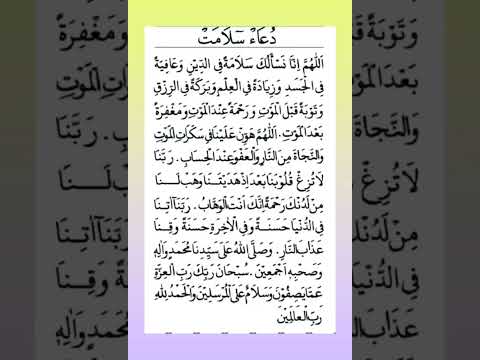 دُعَاءْ سَلَامَتْ
اَللّٰهُمَّ اِنَّا نَسْأَلُكَ سَلَامَةً فِى الدِّيْنِ وَعَافِيَةً
فِى الْجَسَدِ وَزِيَادَةً فِى الْعِلْمِ وَبَرَكَةً فِى الرِّزْقِ
وَتَوْبَةً قَبْلَ الْمَوْتِ وَرَحْمَةً عِنْدَ الْمَوْتِ وَمَغْفِرَةً
بَعْدَ الْمَوْتِ. اَللّٰهُمَّ هَوِّنْ عَلَيْنَا فِى سَكَرَاتِ الْمَوْتِ
وَالنَّجَاةَ مِنَ النَّارِ وَالْعَفْوَ عِنْدَ الْحِسَابِ. رَبَّنَا
لَا تُزِغْ قُلُوْبَنَا بَعْدَ اِذْ هَدَيْتَنَا وَهَبْ لَنَا
مِنْ لَدُنْكَ رَحْمَةً اِنَّكَ اَنْتَ الْوَهَّابُ. رَبَّنَا آتِنَا
فِى الدُّنْيَا حَسَنَةً وَفِى الْاٰخِرَةِ حَسَنَةً وَقِنَا
عَذَابَ النَّارِ. وَصَلَّى اللهُ عَلَى سَيِّدِنَا مُحَمَّدٍ وَاٰلِهِ
وَصَحْبِهِ اَجْمَعِيْنَ. سُبْحَانَ رَبِّكَ رَبِّ الْعِزَّةِ
عَمَّا يَصِفُوْنَ وَسَلَامٌ عَلَى الْمُرْسَلِيْنَ وَالْحَمْدُ لِلّٰهِ
رَبِّ الْعَالَمِيْنَ